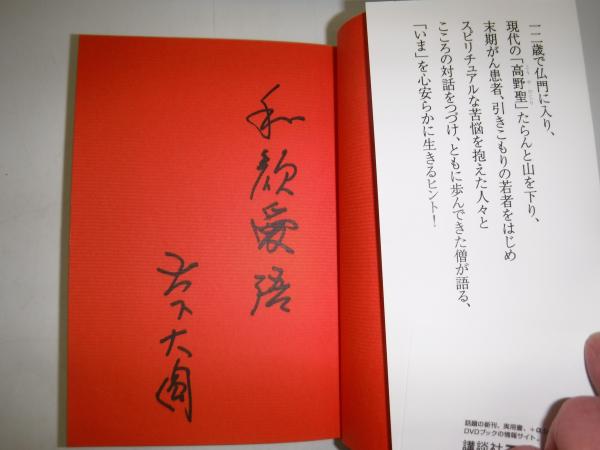 一二歳で仏門に入り、
現代の「高野聖」たらんと山を下り、
末期がん患者、引きこもりの若者をはじめ
スピリチュアルな苦悩を抱えた人々と
こころの対話をつづけ、ともに歩んできた僧が語る、
「いま」を心安らかに生きるヒント!
和顔愛語
大下大圓
話題の新刊、実用書、+α
DVDブックの情報サイト。
講談社